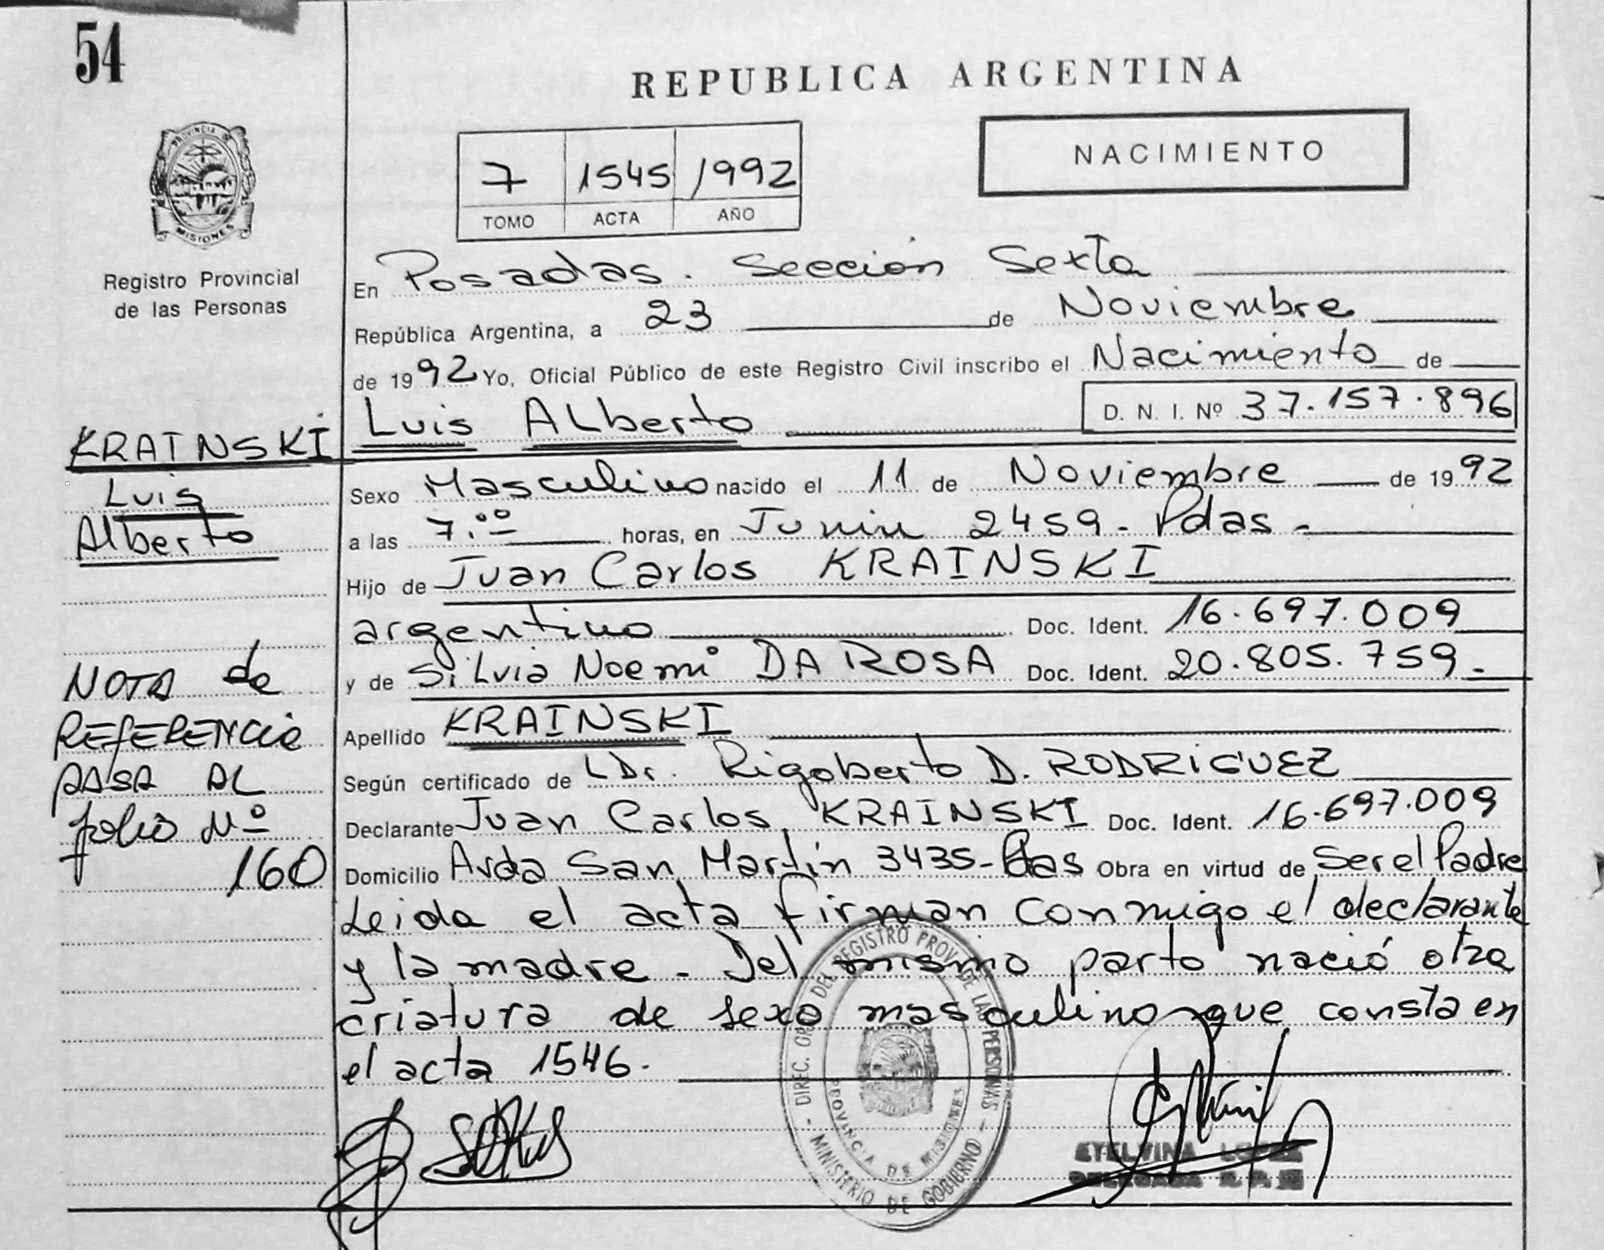 54
REPUBLICA ARGENTINA
PROVINCIA DE
MISIONES
Registro Provincial
de las Personas
7 1545 1992
TOMO ACTA AÑO
NACIMIENTO
En Posadas. Sección Sexta
República Argentina, a 23 de Noviembre
de 1992 Yo, Oficial Público de este Registro Civil inscribo el Nacimiento de
Luis Alberto D. N. I. Nº 37.157.896
KRAINSKI
Luis
Alberto
Sexo Masculino nacido el 11 de Noviembre de 1992
a las 7.00 horas, en Junin 2459 - Pdas -
Hijo de Juan Carlos KRAINSKI
argentino Doc. Ident. 16.697.009
y de Silvia Noemi DA ROSA Doc. Ident. 20.805.759.-
NOTA de
REFERENCIA
PASA AL
folio Nº
160
Apellido KRAINSKI
Según certificado de Dr. Rigoberto D. RODRIGUEZ
Declarante Juan Carlos KRAINSKI Doc. Ident. 16.697.009
Domicilio Avda San Martín 3435- Pdas Obra en virtud de Ser el Padre
Leida el acta firman conmigo el declarante
y la madre - Del mismo parto nació otra
criatura de sexo masculino que consta en
el acta 1546.
DIREC. GRAL DEL REGISTRO PROV. DE LAS PERSONAS
PROVINCIA DE MISIONES
- MINISTERIO DE GOBIERNO -
ETELVINA
DELEGADA R. P.